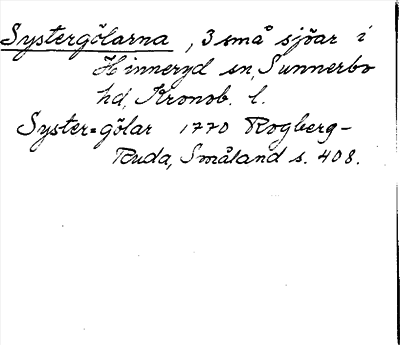 Systergölarna, 3 små sjöar i
Hinneryd sn, Sunnerbo
hd, Kronob. l.
Syster=gölar 1770 Rogberg-
Ruda, Småland s. 408.